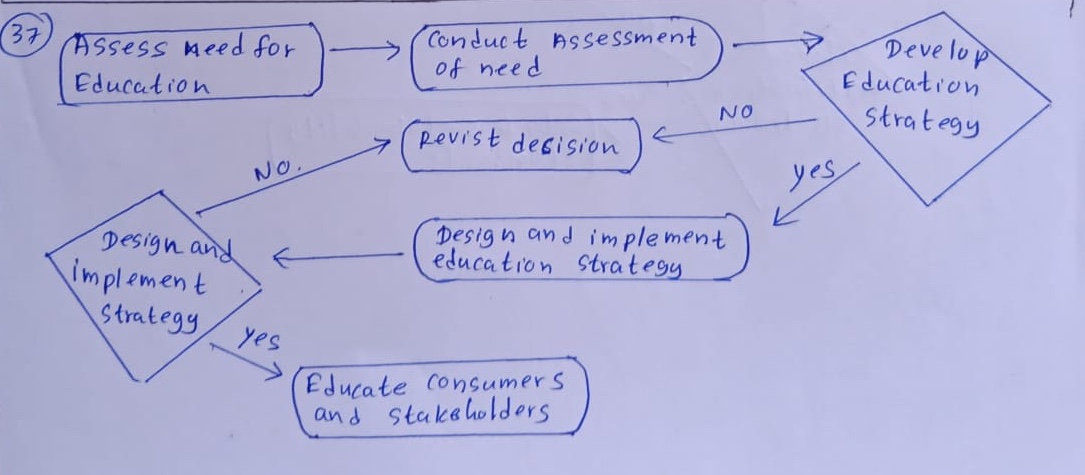 37
Assess Need for
Education
Conduct Assessment
of need
Develop
Education
Strategy
NO
Revist decision
NO.
yes
Design and implement
education strategy
Design and
implement
strategy
yes
Educate consumers
and stakeholders